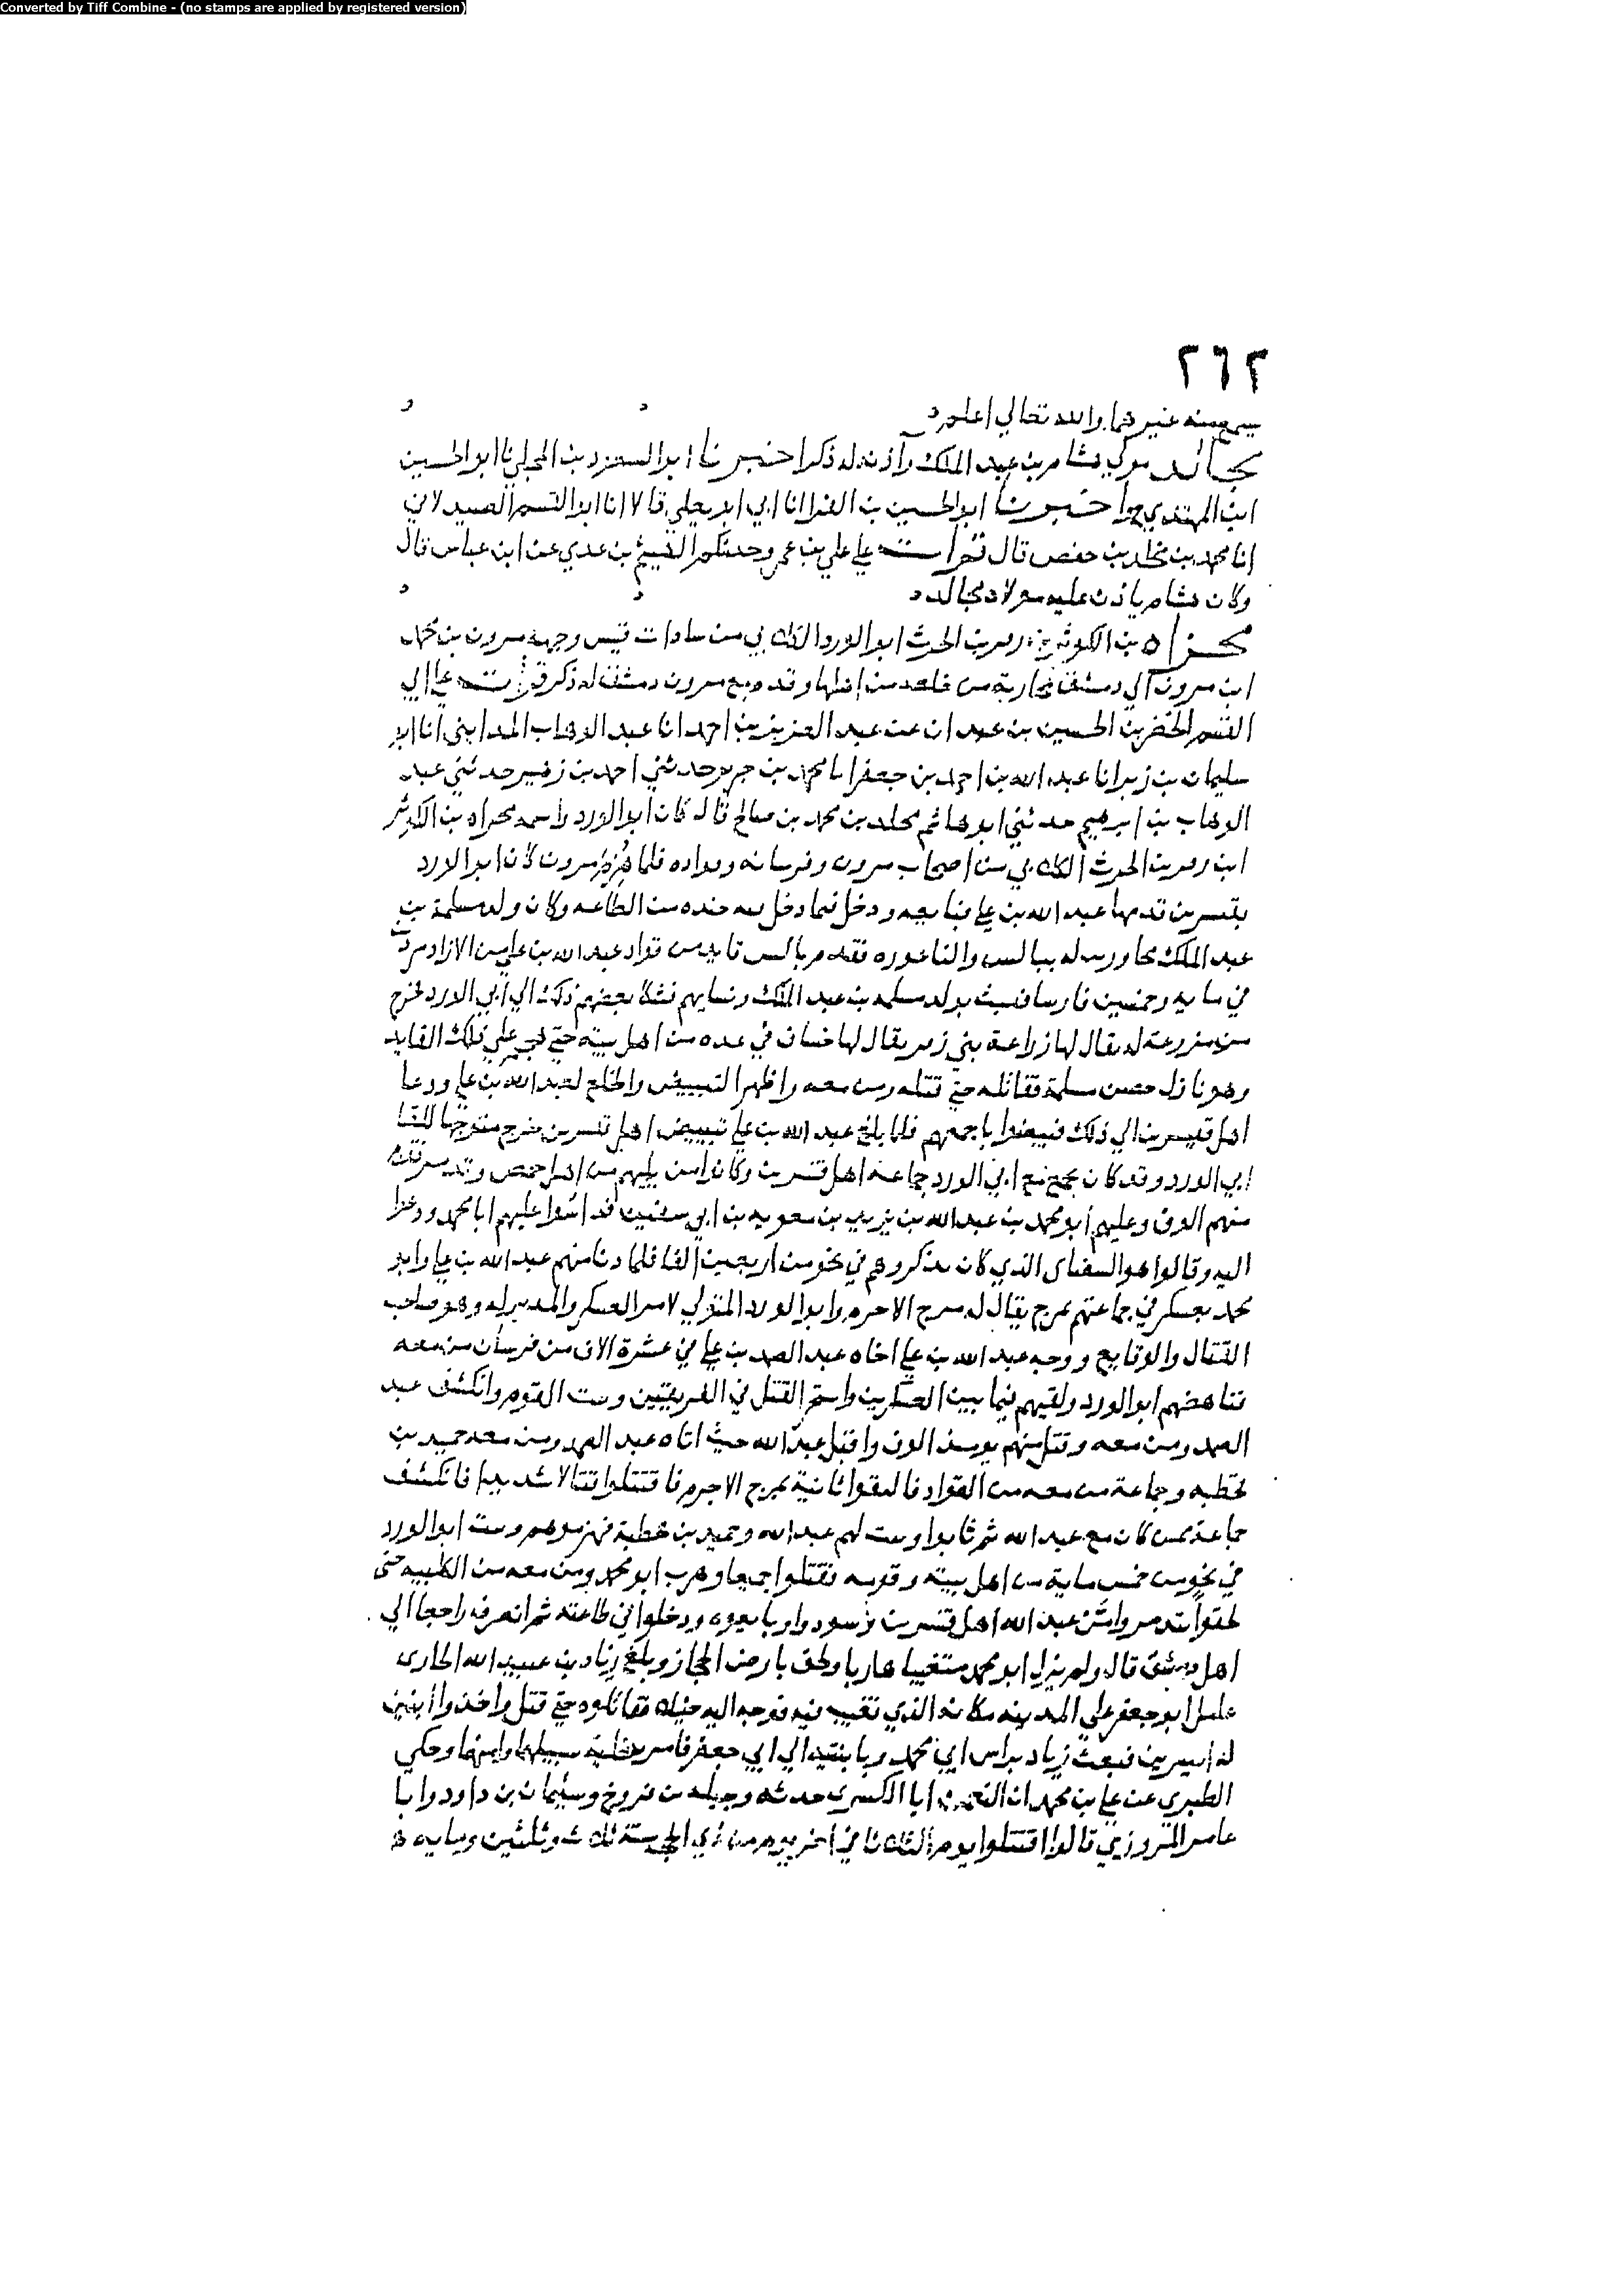 Converted by Tiff Combine - (no stamps are applied by registered version)
٢٦٢
يسمع منه غيرهما والله تعالي اعلم
مجالد مولي هشام بن عبد الملك وآذنه له ذكر اخبرنا ابو السعود بن المجلي نا ابو الحسين
ابن المهتدي ح واخبرنا ابو الحسين بن الفرا انا ابي ابو يعلي قالا انا ابو القسم الصيدلاني
انا محمد بن مخلد بن حفص قال قرات علي علي بن عمرو حدثكم الهيثم بن عدي عن ابن عباس قال
وكان هشام ياذن عليه مولاه مجالد
مجزاه بن الكوثر بن زفر بن الحرث ابو الورد الكلابي من سادات قيس وجهه مروان بن محمد
ابن مروان الي دمشق لمحاربة من خلعه من اهلها وقد مع مروان دمشق له ذكر قرات علي ابي
القسم الخضر بن الحسين بن عبدان عن عبد العزيز بن احمد انا عبد الوهاب المدايني انا ابو
سليمان بن زبر انا عبد الله بن احمد بن جعفر انا محمد بن جرير حدثني احمد بن زهير حدثني عبد
الوهاب بن ابرهيم حدثني ابو هاشم مخلد بن محمد بن صالح قال كان ابو الورد واسمه مجزاه بن الكوثر
ابن زفر بن الحرث الكلابي من اصحاب مروان وفرسانه وقواده فلما هزم مروان كان ابو الورد
بقنسرين قدمها عبد الله بن علي فبايعه ودخل فيما دخل فيه جنده من الطاعه وكان ولد مسلمة بن
عبد الملك مجاورين له ببالس والناعوره فقدم بالس قايد من قواد عبد الله بن علي من الازادمردين
في مايه وخمسين فارسا فبعث بولد مسلمه بن عبد الملك ونسايهم فشكا بعضهم ذلك الي ابي الورد فخرج
من مزرعة له يقال لها زراعة بني زفر يقال لها خساف في عده من اهل بيته حتي هجم علي ذلك القايد
وهو نازل حصن مسلمة فقاتله حتي قتله ومن معه واظهر التبييض والخلع لعبد الله بن علي ودعا
اهل قنسرين الي ذلك فبيضوا باجمعهم فلما بلغ عبد الله بن علي تبييض اهل قنسرين خرج متوجها للقا
ابي الورد وقد كان تجمع مع ابي الورد جماعة اهل قنسرين وكاتبوا من يليهم من اهل حمص وتدمر فقدم
منهم الوف وعليهم ابو محمد بن عبد الله بن يزيد بن معويه بن ابي سفين فراسوا عليهم ابا محمد ودعوا
اليه وقالوا هو السفياني الذي كان يذكر وهم في نحو من اربعين الفا فلما دنا منهم عبد الله بن علي وابو
محمد معسكر في جماعتهم بمرج يقال له مرج الاخرم وابو الورد المتولي لامر العسكر والمدبر له وهو صاحب
القتال والوقايع ووجه عبد الله بن علي اخاه عبد الصمد بن علي في عشرة الاف من فرسان من معه
فناهضهم ابو الورد ولقيهم فيما بين العسكرين واستحر القتل في الفريقين وثبت القوم وانكشف عبد
الصمد ومن معه وقتل منهم يومئذ الوف واقبل عبد الله حيث اتاه عبد الصمد ومن معه حميد بن
قحطبه وجماعة من معه من القواد فالتقوا ثانية بمرج الاخرم فاقتتلوا قتالا شديدا فانكشف
جماعة ممن كان مع عبد الله ثم ثابوا وثبت لهم عبد الله وحميد بن قحطبة فهزموهم وثبت ابو الورد
في نحو من خمس ماية من اهل بيته وقومه فقتلوا جميعا وهرب ابو محمد ومن معه من الكلبيه حتى
لحقوا بتدمر وامن عبد الله اهل قنسرين وسودوا وبايعوه ودخلوا في طاعته ثم انصرف راجعا الي
اهل دمشق قال ولم يزل ابو محمد متغيبا هاربا ولحق بارض الحجاز وبلغ زياد بن عبيد الله الحارثي
عامل ابو جعفر علي المدينه مكانه الذي تغيب فيه فوجه اليه خيلا فقاتلوه حتي قتل واخذوا ابنين
له اسيرين فبعث زياد براس ابي محمد وبابنيه الي ابي جعفر فامر بتخلية سبيلهما وامنهما وحكي
الطبري عن علي بن محمد ان النعمن ابا السري حدثه وجبله بن فروخ وسليمان بن داود وابا
عامر المروزي قالوا اقتتلوا يوم الثلاثا في اخر يوم من ذي الحجة سنة ثلث وثلثين ومايه